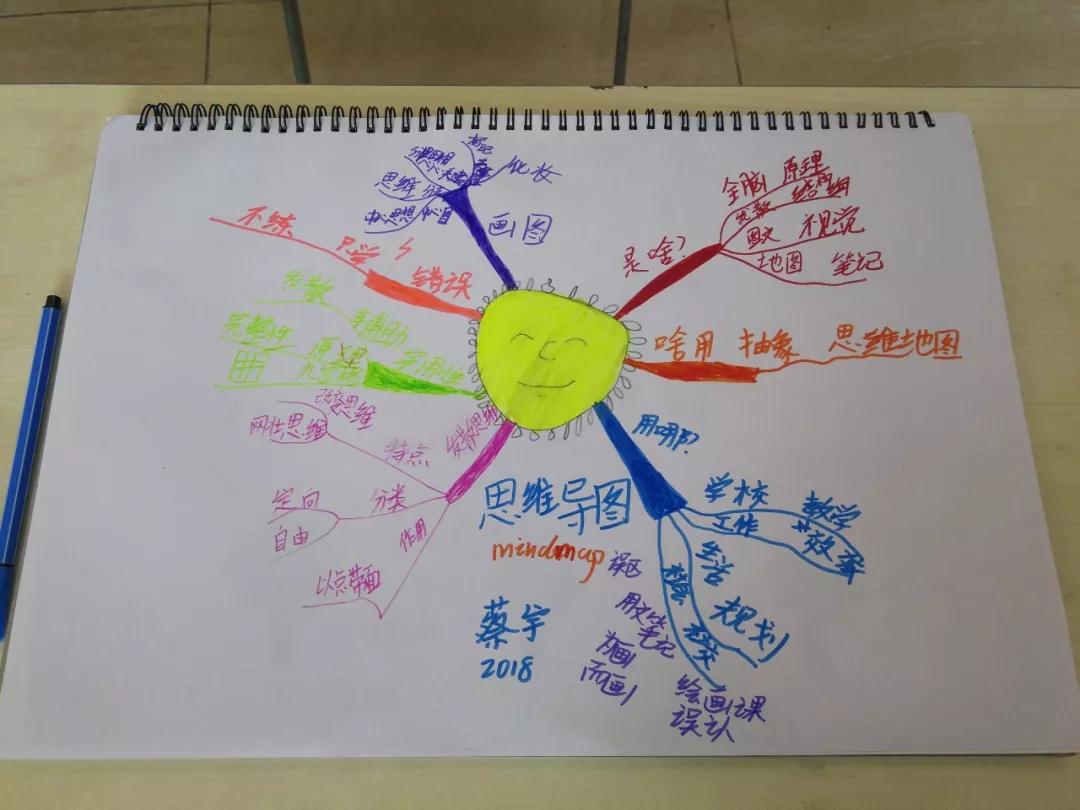 是啥?
全脑 原理
发散 结构
图文 视觉
地图 笔记
啥用 抽象 思维地图
用哪?
学校 教学
工作 效率
生活 规划
社交
思维导图
mindmap
蔡宇
2018
误区
用文做笔记
为画
而画
绘画课
误认
发散思维
特点
改变思维
网状思维
分类
定向
自由
作用
以点带面
实用性
辅助
发散
完整性
错误
只学
不练
画图
化妆
思维